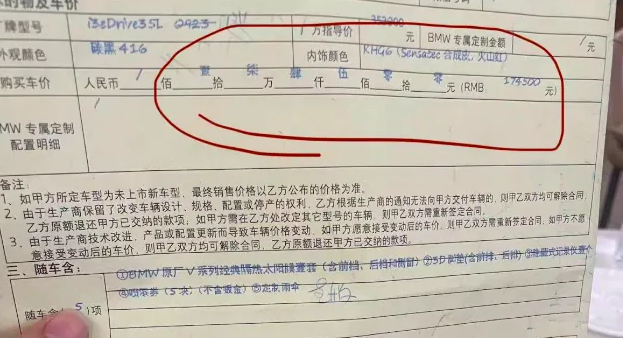 牌型号 i3eDrive35L 厂方指导价 353900 元 BMW 专属定制金额 / 元
外观颜色 碳黑416 内饰颜色 KHG6 (Sensatec 合成皮, 火山红)
购买车价 人民币 / 佰 壹 拾 柒 万 肆 仟 伍 佰 零 拾 零 元 (RMB. 174500 元)
MW 专属定制
配置明细 /
备注:
1、如甲方所定车型为未上市新车型,最终销售价格以乙方公布的价格为准。
2、由于生产商保留了改变车辆设计、规格、配置或停产的权利,乙方根据生产商的通知无法向甲方交付车辆的,则甲乙双方均可解除合同,
乙方原额退还甲方已交纳的款项;如甲方需在乙方处改定其它型号的车辆,则甲乙双方需重新签定合同。
3、由于生产商技术改进、产品或配置更新而导致车辆价格变动,如甲方愿意接受变动后的车价,则甲乙双方需重新签定合同,如甲方不愿
意接受变动后的车价,则甲乙双方均可解除合同,乙方原额退还甲方已交纳的款项。
三、随车含:
随车含(5)项 ①BMW原厂V系列经典隔热太阳膜壹套(含前档、后档和侧窗)②5D脚垫(含前排、后排)③隐藏式记录仪壹个
④喷漆券(5次)(不含钣金)⑤定制雨伞